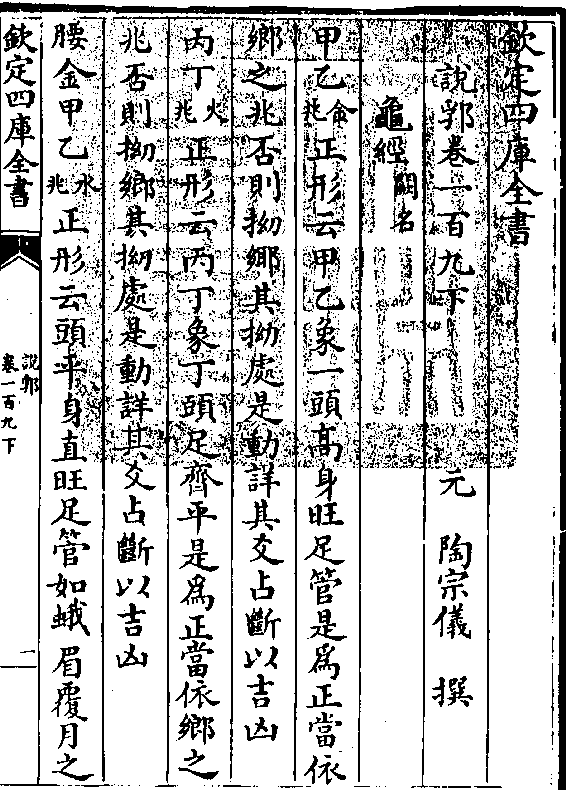 欽定四庫全書
說郛卷一百九下
元 陶宗儀 撰
龜經 闕名
甲乙命兆正形云甲乙象一頭高身旺足管是為正當依
鄉之兆否則拗鄉其拗處是動詳其爻占斷以吉凶
丙丁火兆正形云丙丁象丁頭足齊平是為正當依鄉之
兆否則拗鄉其拗處是動詳其爻占斷以吉凶
腰金甲乙水兆正形云頭平身直旺足管如蛾眉覆月之
欽定四庫全書
說郛
卷一百九下
一